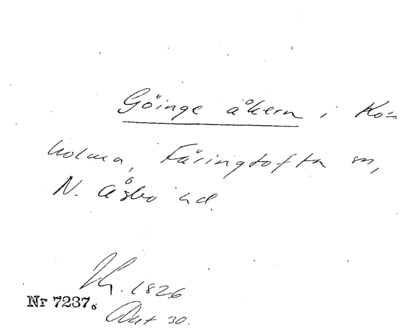 Göinge åkern i Kon
holma, Färingtofta sn,
N. Åsbo hd.
1826
Nr 7237.
Akt 30.